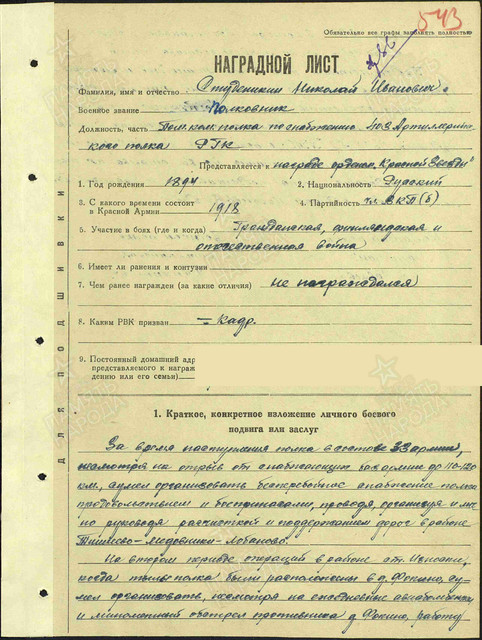 543
Обязательно все графы заполнять полностью
НАГРАДНОЙ ЛИСТ
Фамилия, имя и отчество Студеникин Николай Иванович
Военное звание Полковник
Должность, часть Пом. ком. полка по снабжению 403 Артиллерий-
ского полка РГК
Представляется к награде орденом „Красной Звезды“
1. Год рождения 1894 2. Национальность Русский
3. С какого времени состоит
в Красной Армии 1918 4. Партийность чл. ВКП(б)
5. Участие в боях (где и когда) Гражданская, финляндская и
отечественная война
6. Имеет ли ранения и контузии
7. Чем ранее награжден (за какие отличия) не награждался
8. Каким РВК призван — Кадр.
9. Постоянный домашний адр
представляемого к награж
дению или его семьи)
ДЛЯ ПОДШИВКИ
1. Краткое, конкретное изложение личного боевого
подвига или заслуг
За время наступления полка в составе 33 армии,
несмотря на отрыв от снабжающих баз армии до 110-120
км, сумел организовать бесперебойное снабжение полка
продовольствием и боеприпасами, проводя, организуя и лич
но руководя расчисткой и поддержанием дорог в районе
Износки,
когда тылы полка были расположены в д. Фокино, су-
мел организовать, несмотря на ежедневные
и минометный обстрел противника д. Фокино, работу